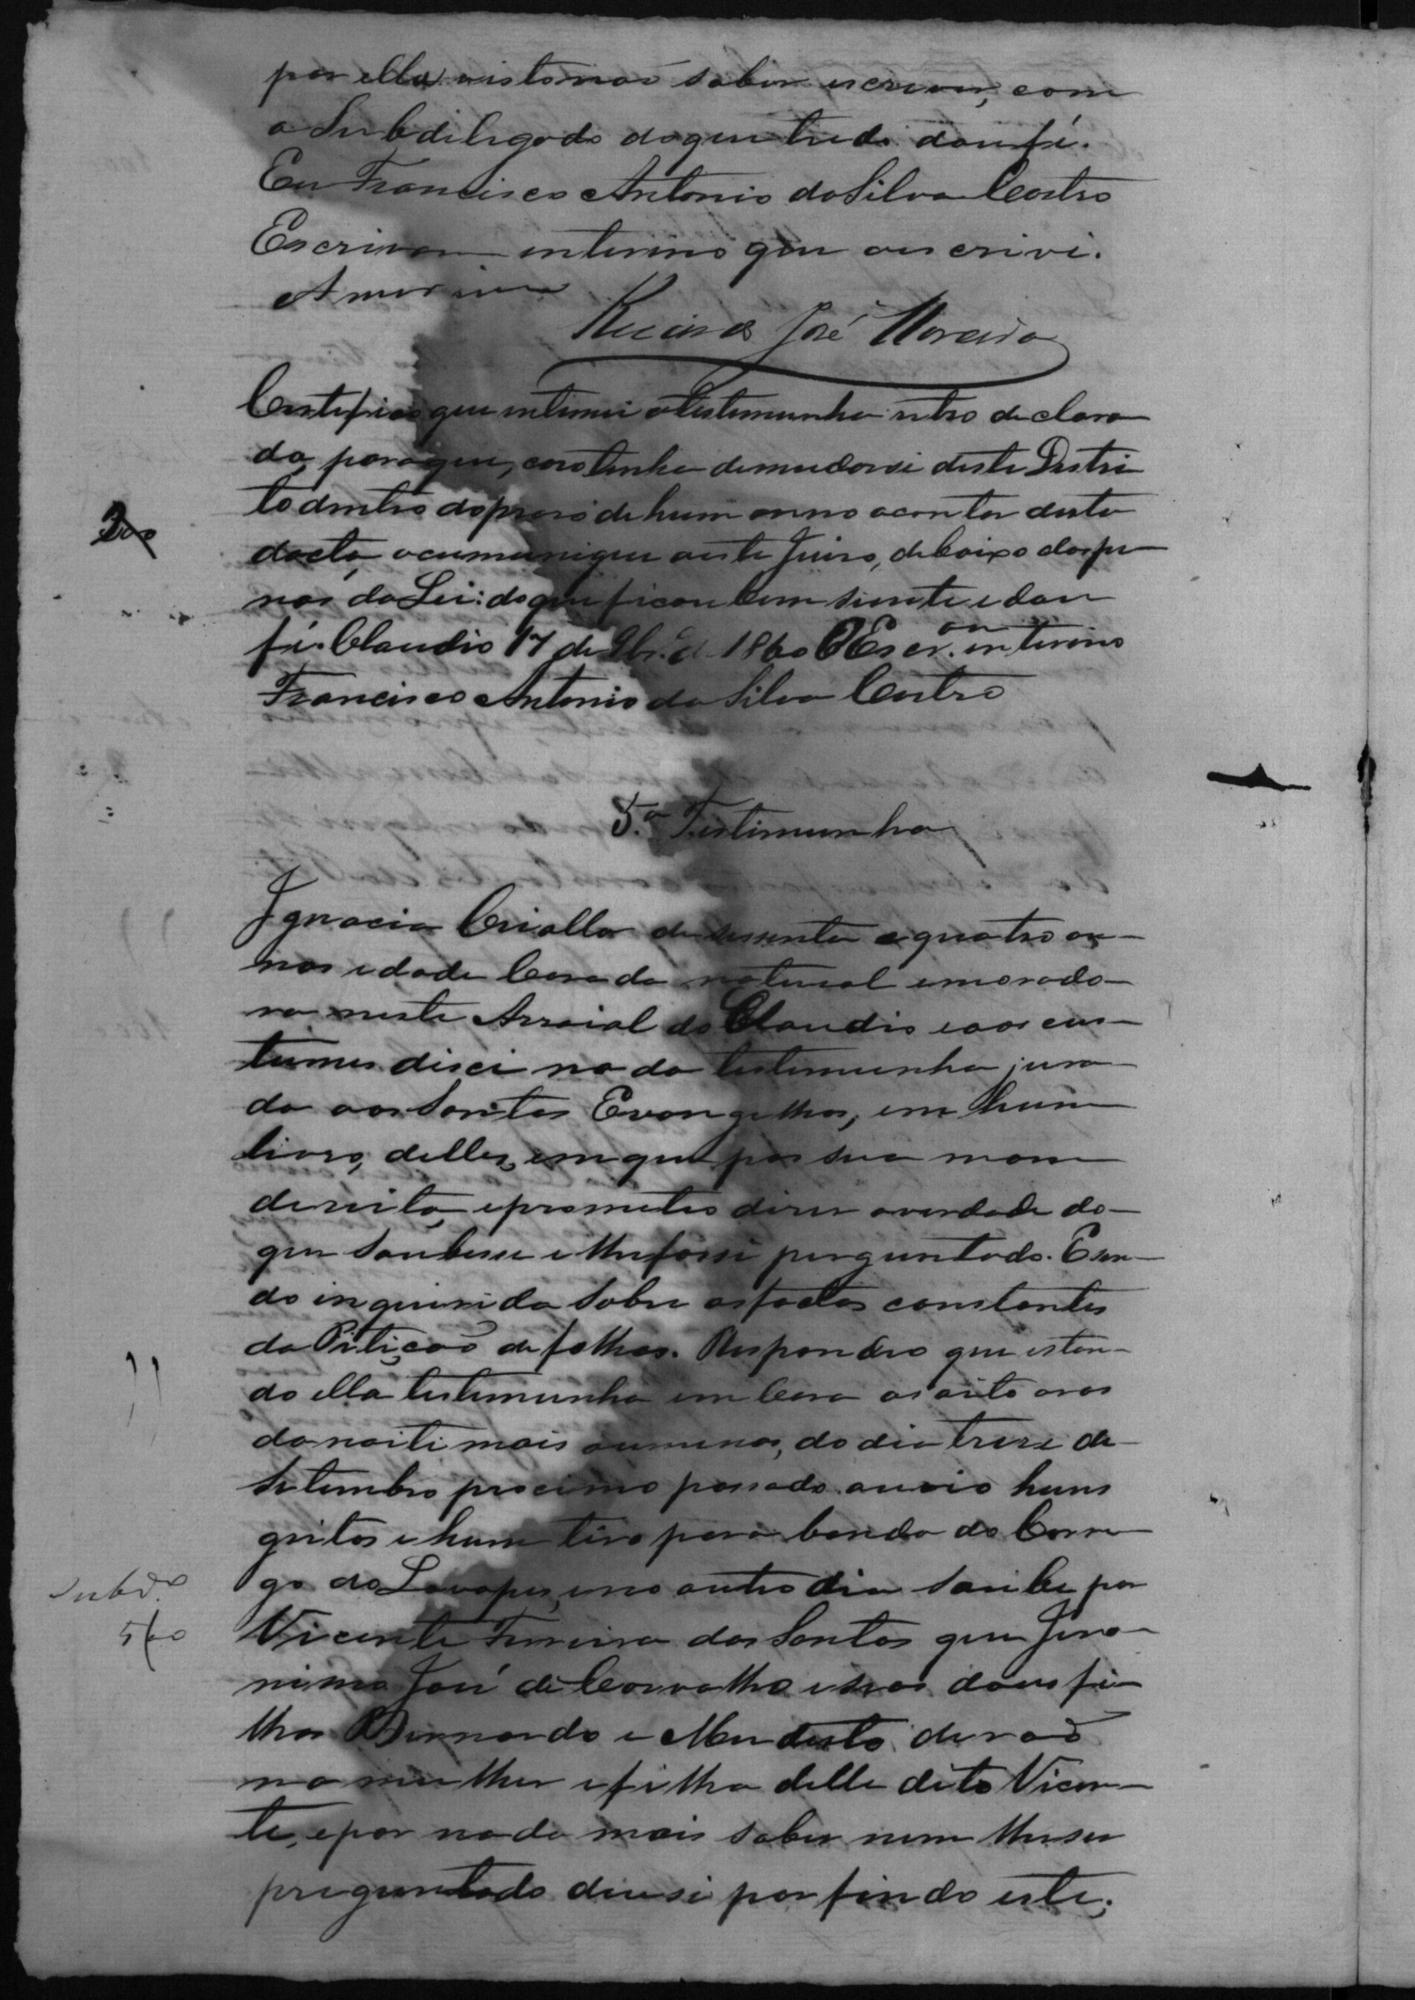 por ella visto naõ saber escrever, com
o Subdelegado do que tudo dou fé.
Eu Francisco Antonio da Silva Castro
Escrivam interino que o escrivi.
José Moreira
Certifico que intimei a testemunha retro declara
da para que, caso tenha de mudarse deste Destri
to dentro do praso de hum anno a contar desta
dacta, o cumunique a este Juiso, debaixo das pe
nas da Lei: do que ficou bem siente e dou
fé. Claudio 17 de 9br.º de 1860 O Escr.am interino
Francisco Antonio da Silva Castro
200
5.a Testimunha
Ignacia Crialla de sessenta e quatro an
nos edade Casada natural e morado
ra neste Arraial do Claudio e aos cus
tumes disci nada testemunha jura
da aos Santos Evangelhos, em hum
livro, delles, em que pos sua mam
dereita, e prometeo diser a verdade do
que soubesse e lhe fosse perguntado. E sen
do inquirida sobre os factos constantes
da Petiçaõ de folhas. Respondeo que estan
do ella testemunha em Casa as oito oras
da noiti mais ou menos, do dia treze de
Setembro procimo passado ouvio huns
gritos e hum tiro para banda do Corre
go do Lavapes, e no outro dia soube por
Vicente Ferreira dos Santos que Jero
nimo José de Carvalho e seos dous fi
lhos Bernardo e Modesto deraõ
na mulher e filha delle dito Vicen
te, e por nada mais saber nem lhe ser
preguntado deu se por findo este,
Subd.º
500